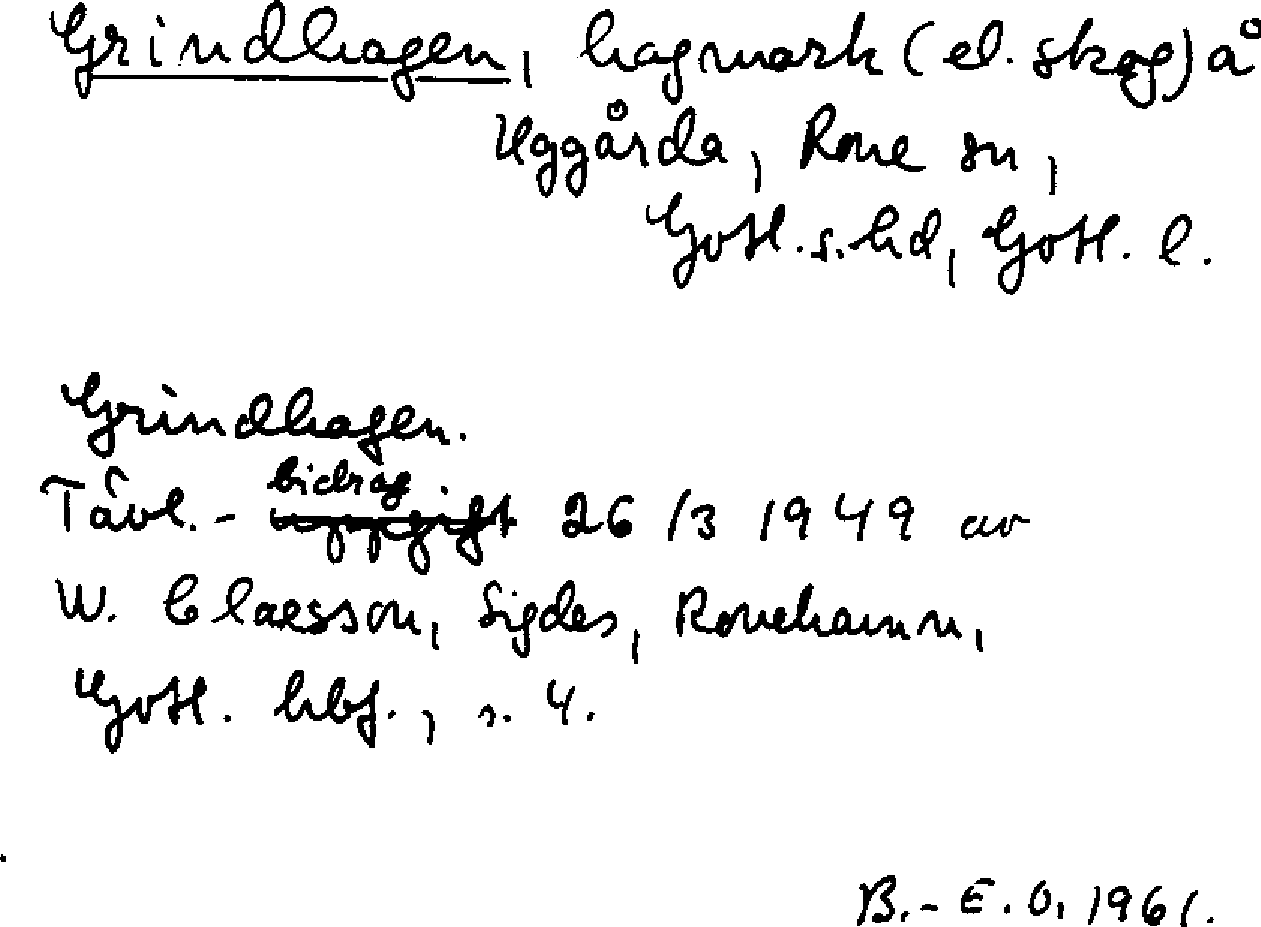 Grindhagen, hagmark (el. skog) å
Uggårda, Rone sn,
Gotl. s. hd, Gotl. l.
Grindhagen.
Tävl.- bidrag uppgift 26/3 1949 av
W. Claesson, Sigdes, Ronehamn,
Gotl. hbf., s. 4.
B.-E. O. 1961.